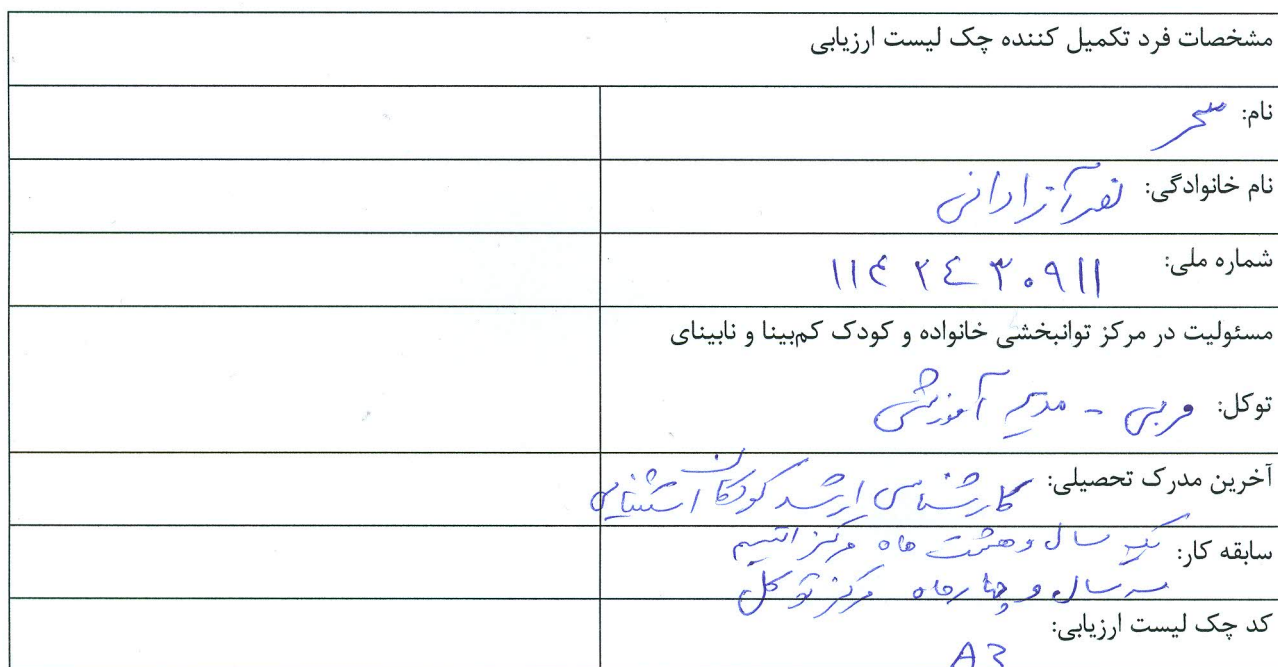 مشخصات فرد تکمیل کننده چک لیست ارزیابی
نام: سحر
نام خانوادگی: نصر آزادانی
شماره ملی: ۱۱۴۲۴۳۰۹۱۱
مسئولیت در مرکز توانبخشی خانواده و کودک کم‌بینا و نابینای
توکل: مربی - مدیر آموزشی
آخرین مدرک تحصیلی: کارشناسی ارشد کودکان استثنایی
سابقه کار: یک سال و هشت ماه مرکز اتیسم
سه سال و چهار ماه مرکز توکل
کد چک لیست ارزیابی:
A3